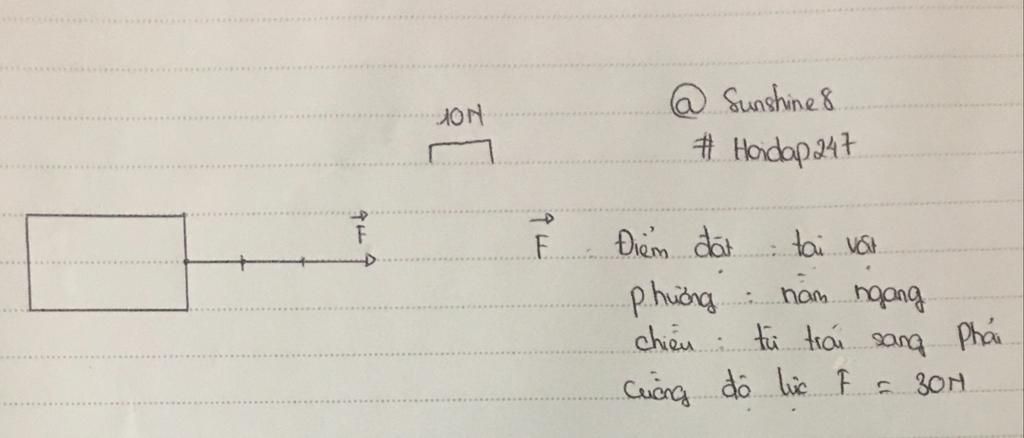 10N
@ Sunshine8
# Hoidap247
F
F : Điểm đặt : tại vật
phương : nằm ngang
chiều : từ trái sang phải
Cường độ lực F = 30N